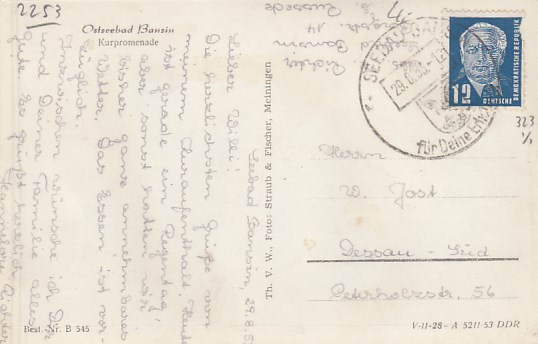 2253
Ostseebad Bansin
Kurpromenade
Seebad Bansin, 29.8.53
Lieber Willi!
Die herzlichsten Grüße von
meinem Kuraufenthalt. Heute
ist gerade ein Regentag,
aber sonst hatten wir
bisher ganz annehmbares
Wetter. Das Essen ist vor-
züglich.
Inzwischen wünsche ich Dir
und Deiner Familie alles
Gute. Es grüßt herzlich
Hannelore Richter
Richter
Seebad Bansin
14
Th. V. W., Foto: Straub & Fischer, Meiningen
SEEBAD BANSIN
29.8.53
für Deine
12
DEUTSCHE
DEMOKRATISCHE REPUBLIK
323
Herrn
W. Jost
Dessau - Süd
Peterholzstr. 56
Best. Nr. B 545
V-11-28 - A 5211 53 DDR